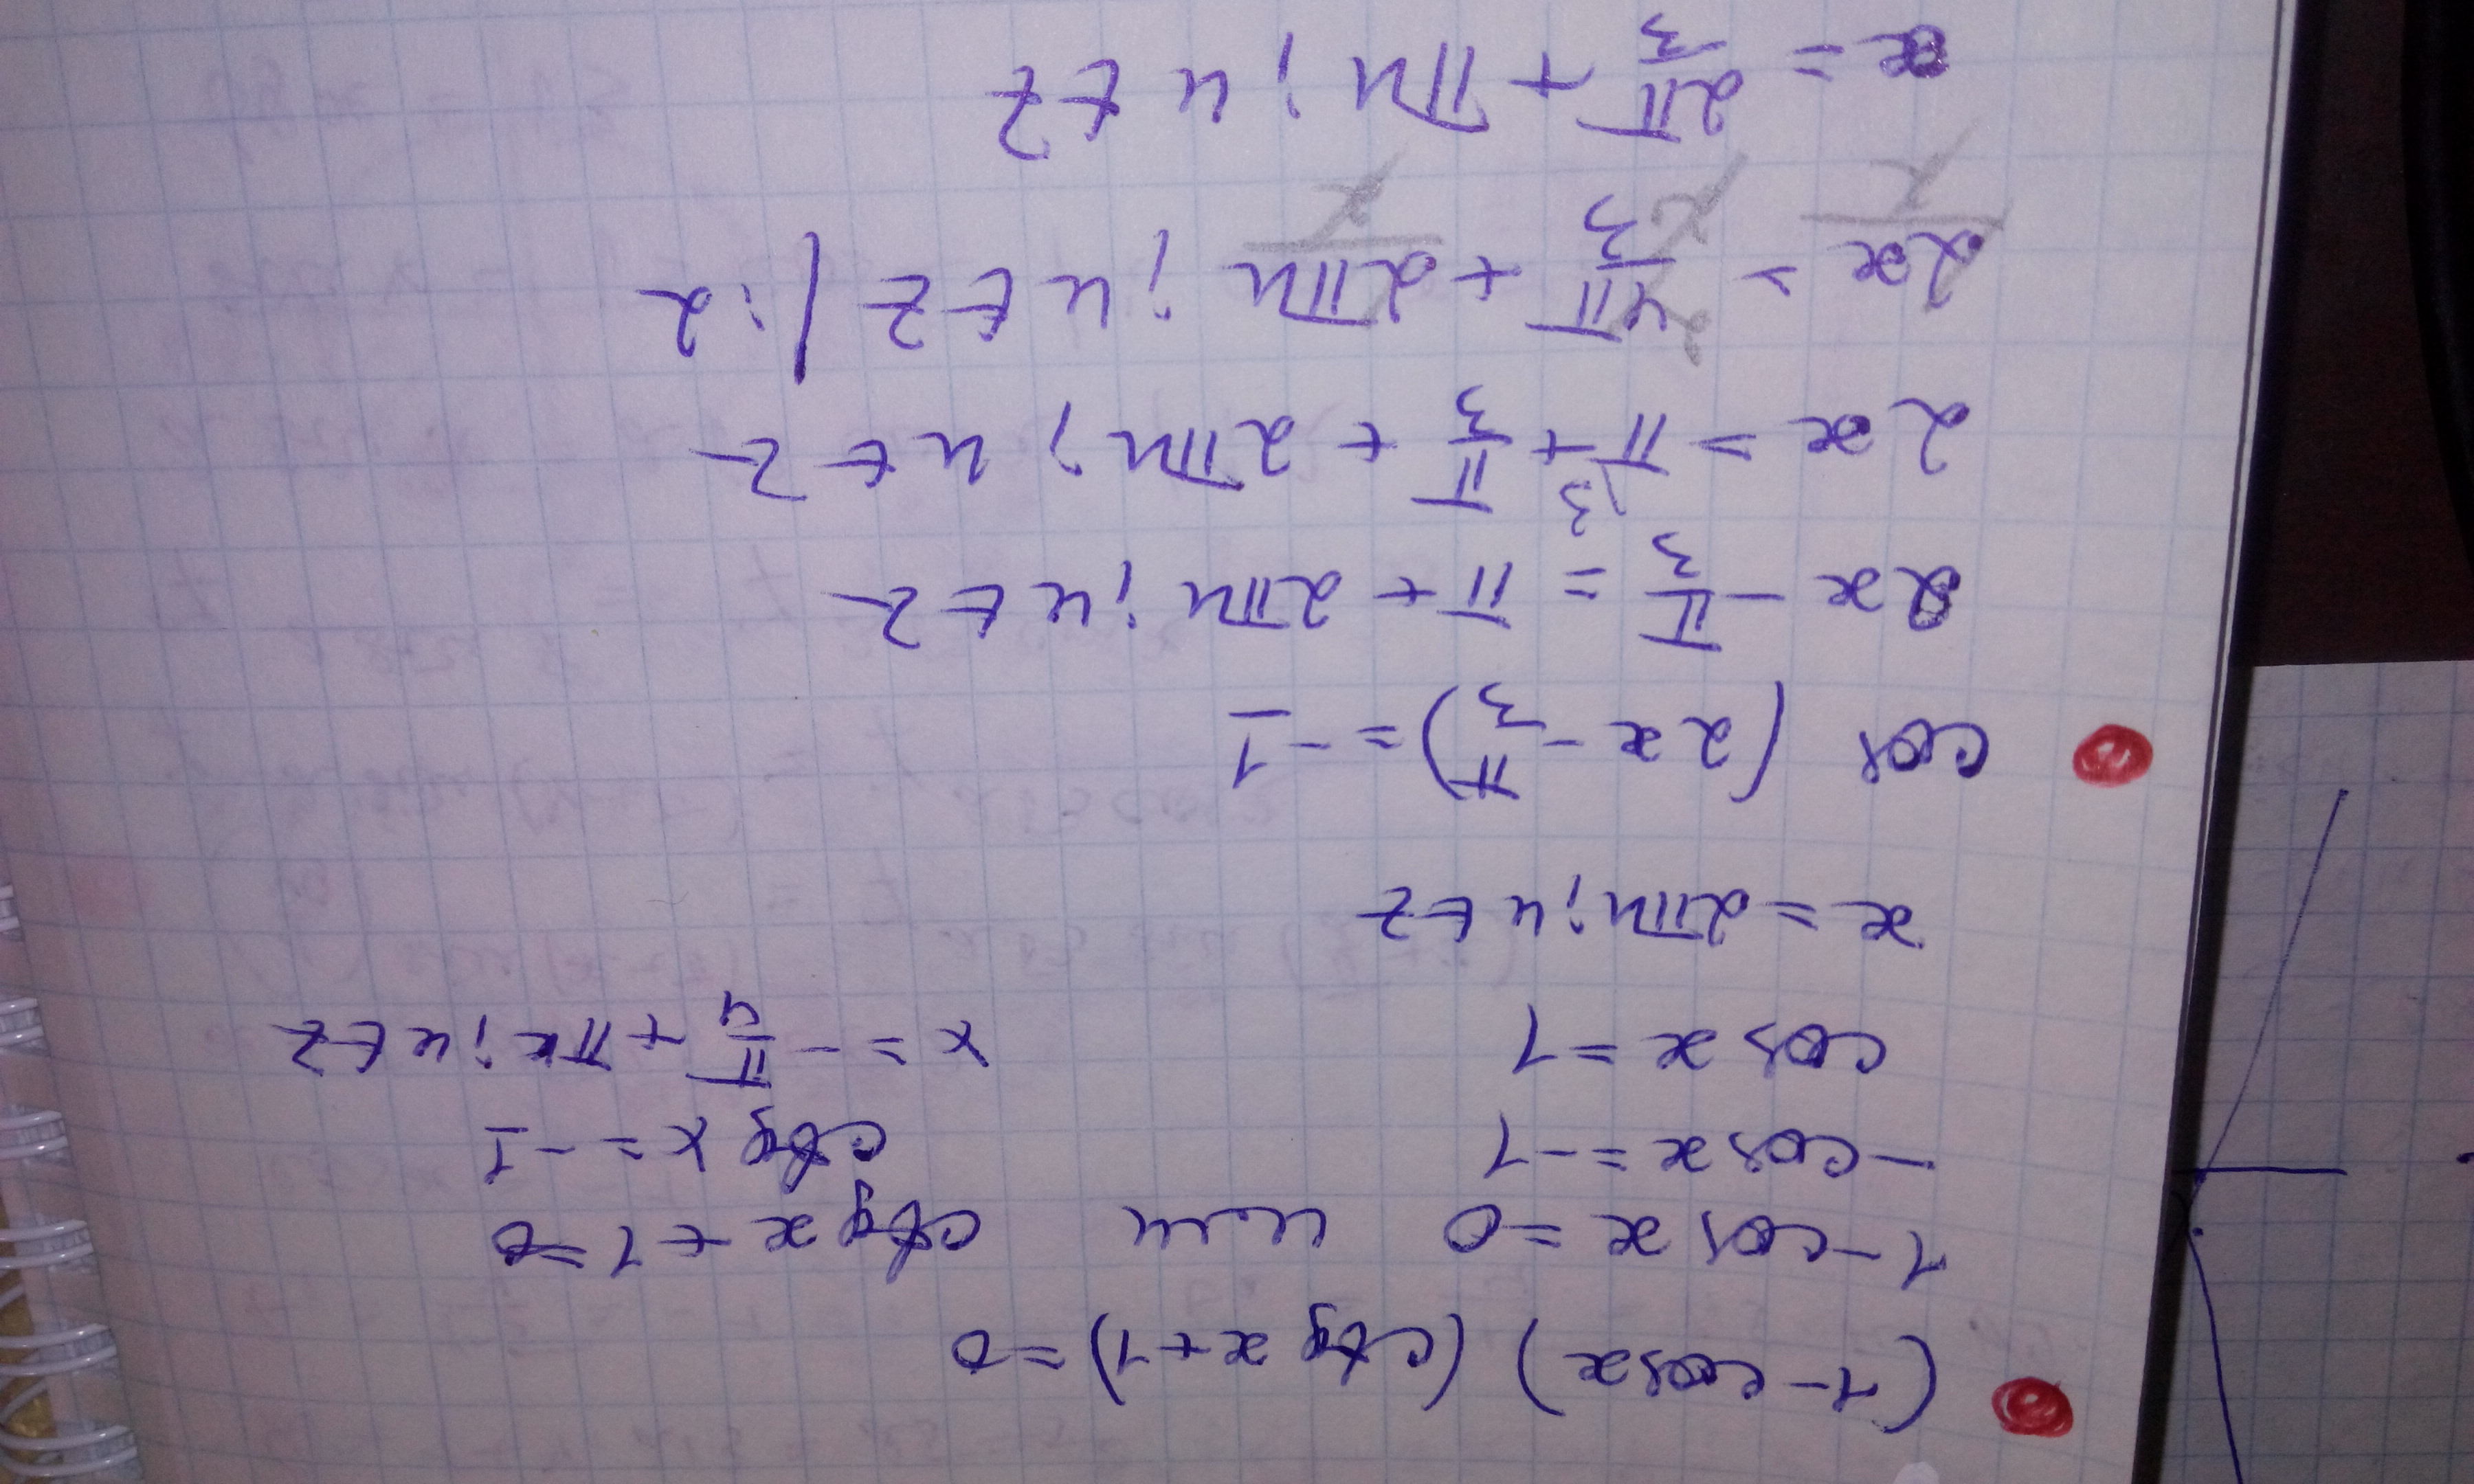 (1-cosx) (ctg x+1)=0
1-cos x=0 или ctg x+1=0
-cos x=-1 ctg x=-1
cos x=1 x=-π/4+πk; k∈Z
x=2πn; n∈Z
cos (2x-π/3)=-1
2x-π/3=π+2πn; n∈Z
2x=π\3+π/3+2πn; n∈Z
2x=4π/3+2πn; n∈Z /:2
2 2 2 2
x=2π/3+πn; n∈Z